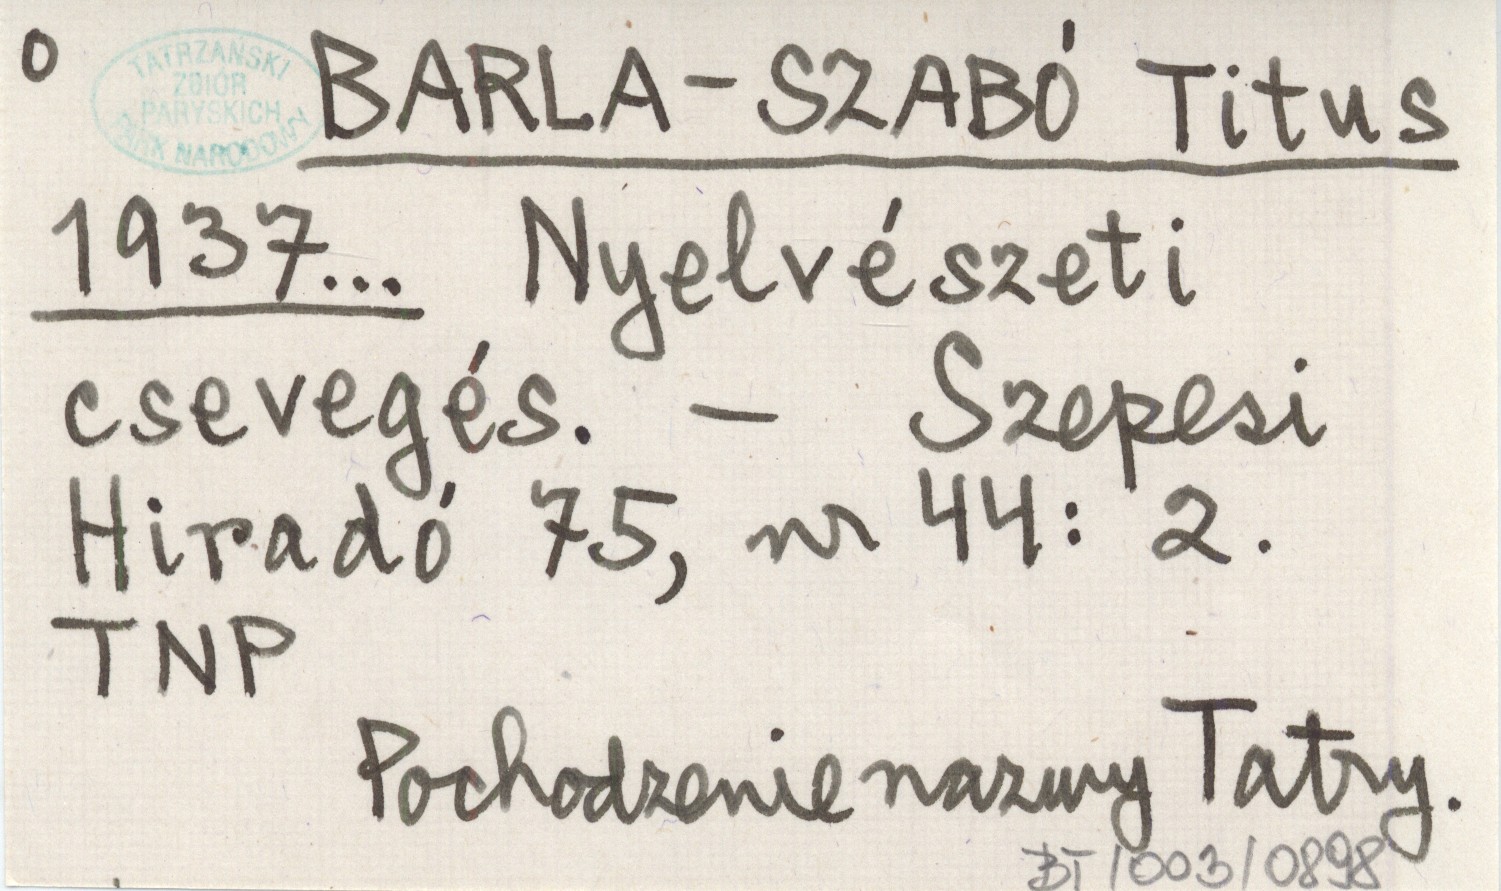 o
TATRZAŃSKI
ZBIÓR
PARYSKICH
PARK NARODOWY
BARLA-SZABÓ Titus
1937... Nyelvészeti
csevegés. – Szepesi
Hiradó 75, nr 44: 2.
TNP
Pochodzenie nazwy Tatry.
BT/003/0898